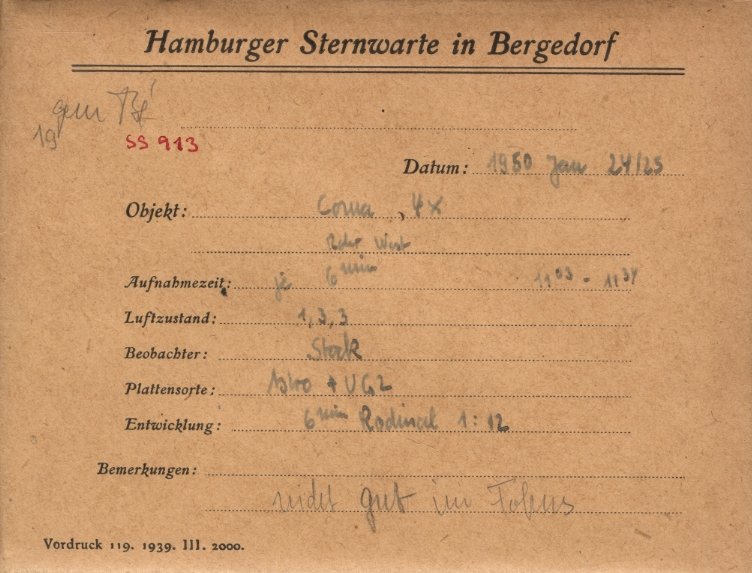 Hamburger Sternwarte in Bergedorf
gem
19
SS 913
Datum: 1950 Jan 24/25
Objekt: Coma, 4x
Rohr West
Aufnahmezeit: je 6 min 11 03 - 11 34
Luftzustand: 1, 3, 3
Beobachter: Stock
Plattensorte: Astro + UG2
Entwicklung: 6 min Rodinal 1:12
Bemerkungen:
nicht gut im Fokus
Vordruck 119. 1939. III. 2000.